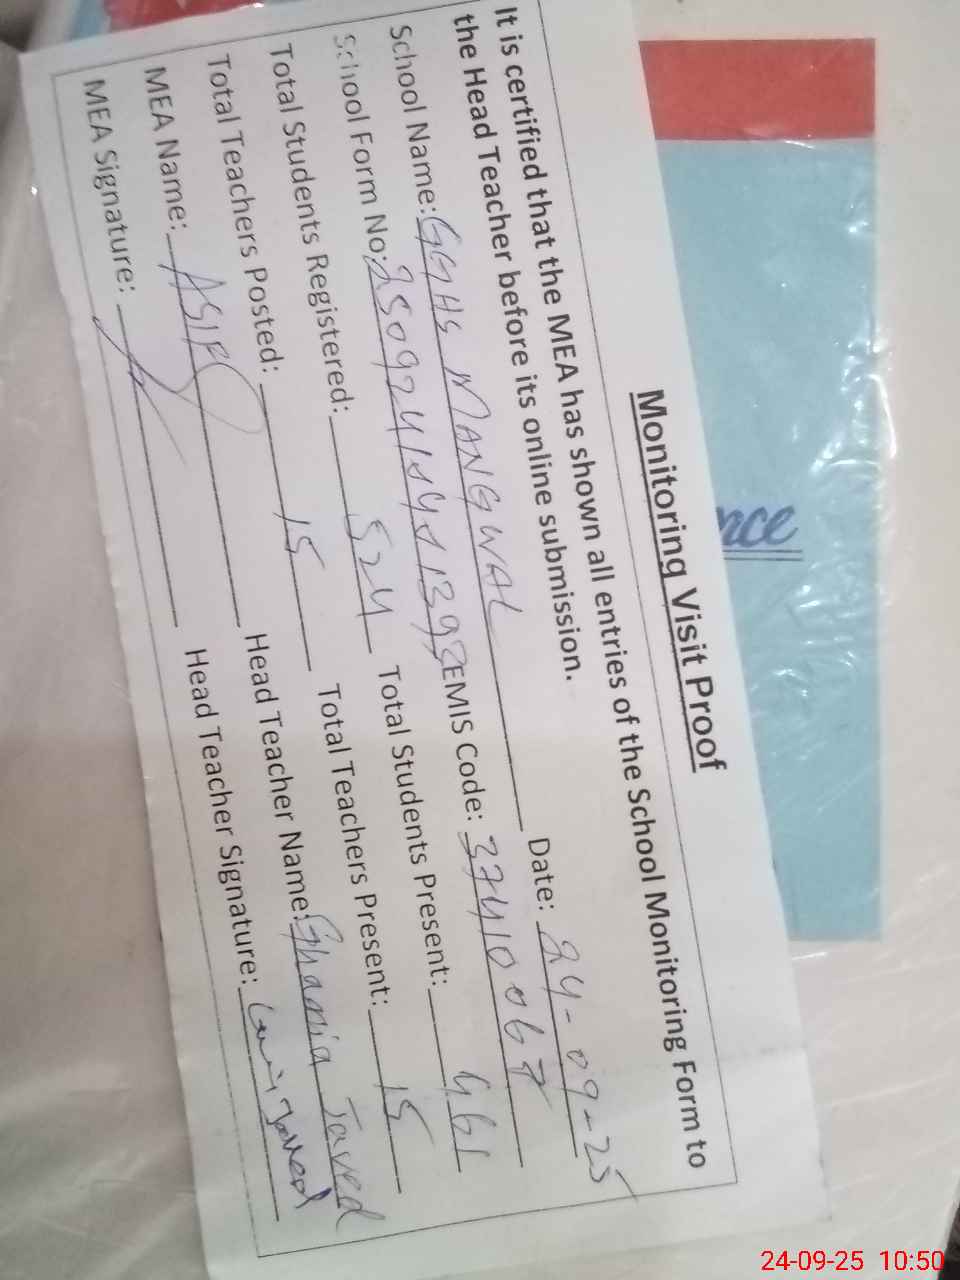 Monitoring Visit Proof
It is certified that the MEA has shown all entries of the School Monitoring Form to
the Head Teacher before its online submission.
School Name: GGHS MANGWAL Date: 24-09-25
School Form No: EMIS Code: 37410067
Total Students Registered: 524 Total Students Present: 461
Total Teachers Posted: 15 Total Teachers Present: 15
MEA Name: ASIF Head Teacher Name: Ghania Javed
MEA Signature: Head Teacher Signature: Javed
nce
24-09-25 10:50